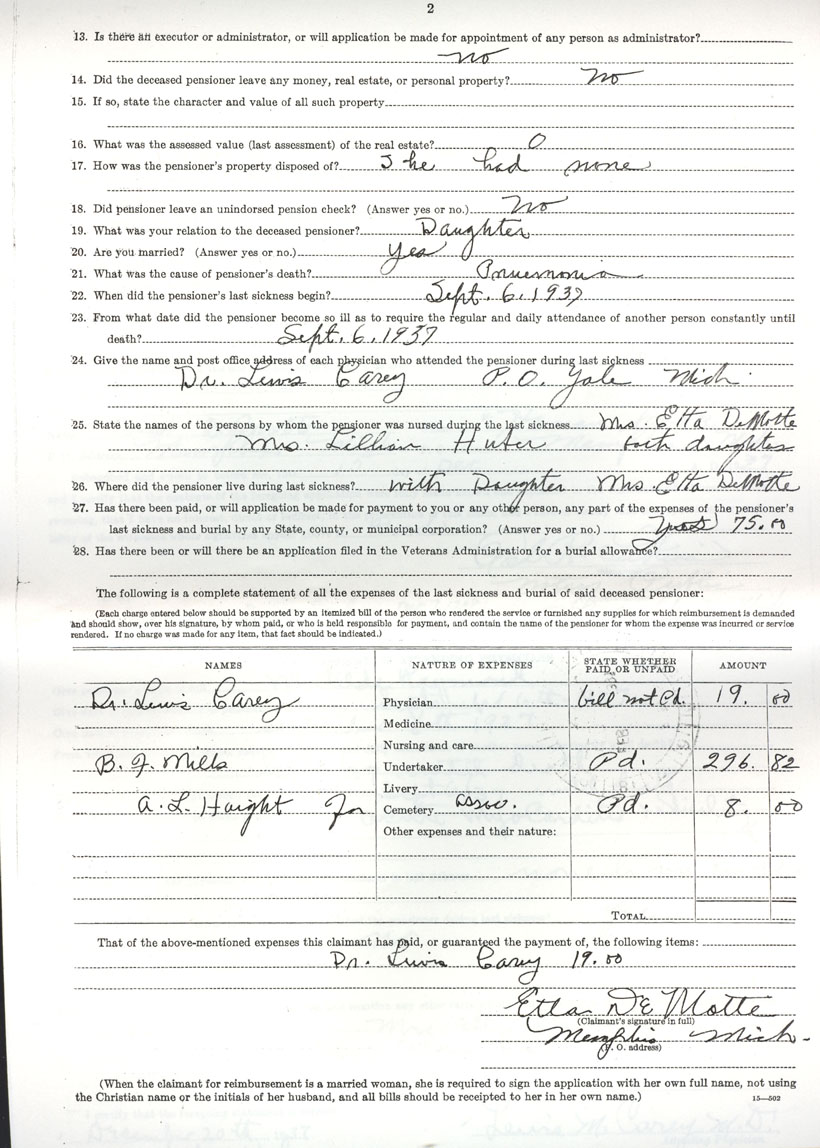 2
13. Is there an executor or administrator, or will application be made for appointment of any person as administrator?
no
14. Did the deceased pensioner leave any money, real estate, or personal property? No
15. If so, state the character and value of all such property
16. What was the assessed value (last assessment) of the real estate? 0
17. How was the pensioner's property disposed of? She had none
18. Did pensioner leave an unindorsed pension check? (Answer yes or no.) No
19. What was your relation to the deceased pensioner? Daughter
20. Are you married? (Answer yes or no.) Yes
21. What was the cause of pensioner's death? Pnuemonia
22. When did the pensioner's last sickness begin? Sept. 6, 1937
23. From what date did the pensioner become so ill as to require the regular and daily attendance of another person constantly until
death? Sept. 6, 1937
24. Give the name and post office address of each physician who attended the pensioner during last sickness
Dr. Lewis Carey P.O. Yale Mich.
25. State the names of the persons by whom the pensioner was nursed during the last sickness. Mrs. Etta DeMotte
Mrs. Lillian Huter both daughters
26. Where did the pensioner live during last sickness? with Daughter Mrs. Etta DeMotte
27. Has there been paid, or will application be made for payment to you or any other person, any part of the expenses of the pensioner's
last sickness and burial by any State, county, or municipal corporation? (Answer yes or no.) 75.00
28. Has there been or will there be an application filed in the Veterans Administration for a burial allowance?
The following is a complete statement of all the expenses of the last sickness and burial of said deceased pensioner:
(Each charge entered below should be supported by an itemized bill of the person who rendered the service or furnished any supplies for which reimbursement is demanded
and should show, over his signature, by whom paid, or who is held responsible for payment, and contain the name of the pensioner for whom the expense was incurred or service
rendered. If no charge was made for any item, that fact should be indicated.)
NAMES NATURE OF EXPENSES STATE WHETHER PAID OR UNPAID AMOUNT
Dr. Lewis Carey Physician bill not Pd. 19. 00
Medicine
Nursing and care
B. F. Mills Undertaker Pd. 296. 82
Livery
A. L. Haight for Cemetery assoc. Pd. 8. 00
Other expenses and their nature:
TOTAL
That of the above-mentioned expenses this claimant has paid, or guaranteed the payment of, the following items:
Dr. Lewis Carey 19.00
Etta DE Motte
(Claimant's signature in full)
Memphis Mich.
(P. O. address)
(When the claimant for reimbursement is a married woman, she is required to sign the application with her own full name, not using
the Christian name or the initials of her husband, and all bills should be receipted to her in her own name.)
15—502